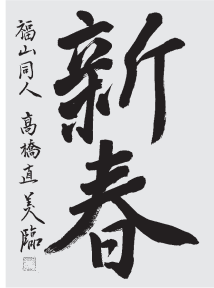 新春
福山同人 高橋直美臨